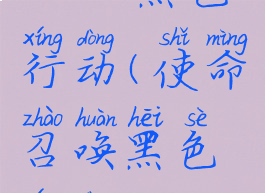 xíng dòng shǐ mìng
行动(使命
zhào huàn hēi sè
召唤黑色